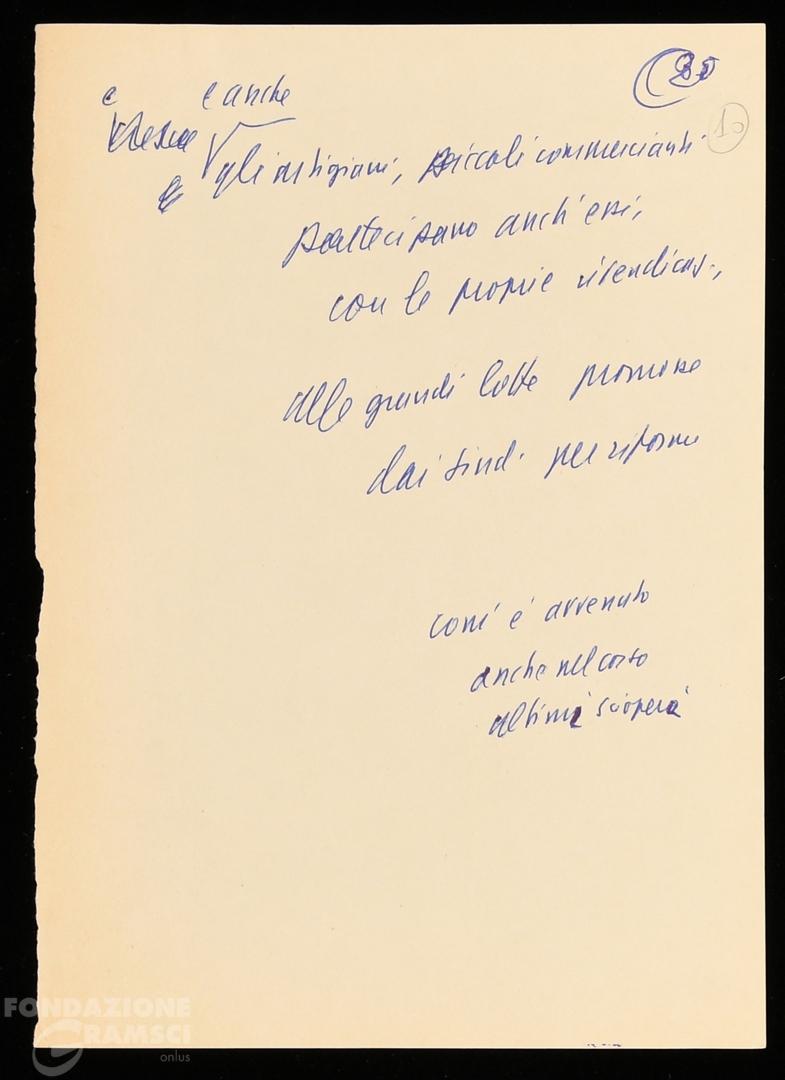 e e anche
30
10
e gli artigiani, piccoli commercianti
partecipano anch'essi,
con le proprie rivendicaz.,
alle grandi lotte promosse
dai sind. per riforme
com'è avvenuto
anche nel corso
ultimi scioperi
FONDAZIONE
GRAMSCI
onlus